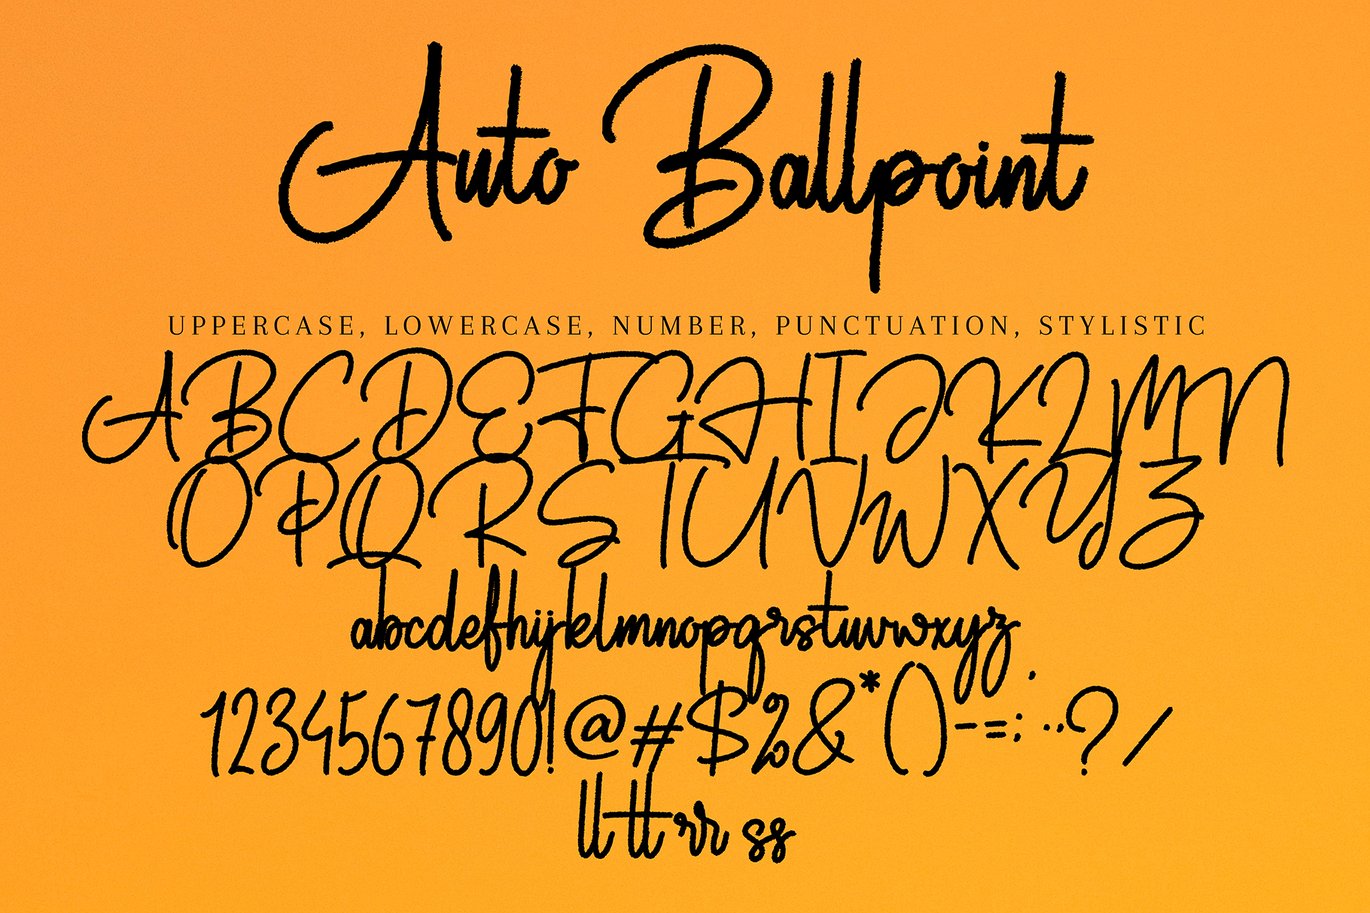 Auto Ballpoint
UPPERCASE, LOWERCASE, NUMBER, PUNCTUATION, STYLISTIC
ABCDEFGHIJKLMN
OPQRSTUVWXYZ
abcdefhijkelmnopqrstuvwxyz.
1234567890!@#$%&*()-=;..?/
ll tt rr ss